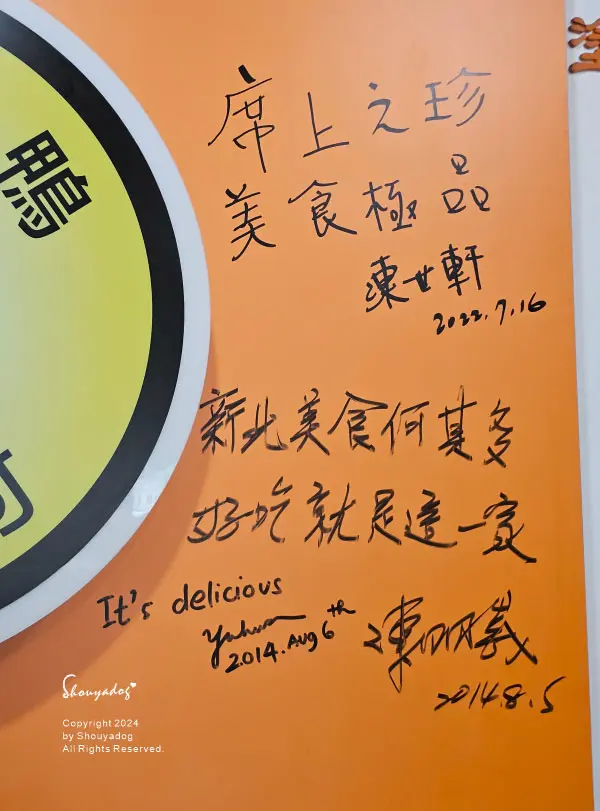 鴨
席上之珍
美食極品
陳世軒
2022.7.16
新北美食何其多
好吃就是這一家
It's delicious
2014.Aug 6th
陳明義
2014.8.5
Shouyadog
Copyright 2024
by Shouyadog
All Rights Reserved.